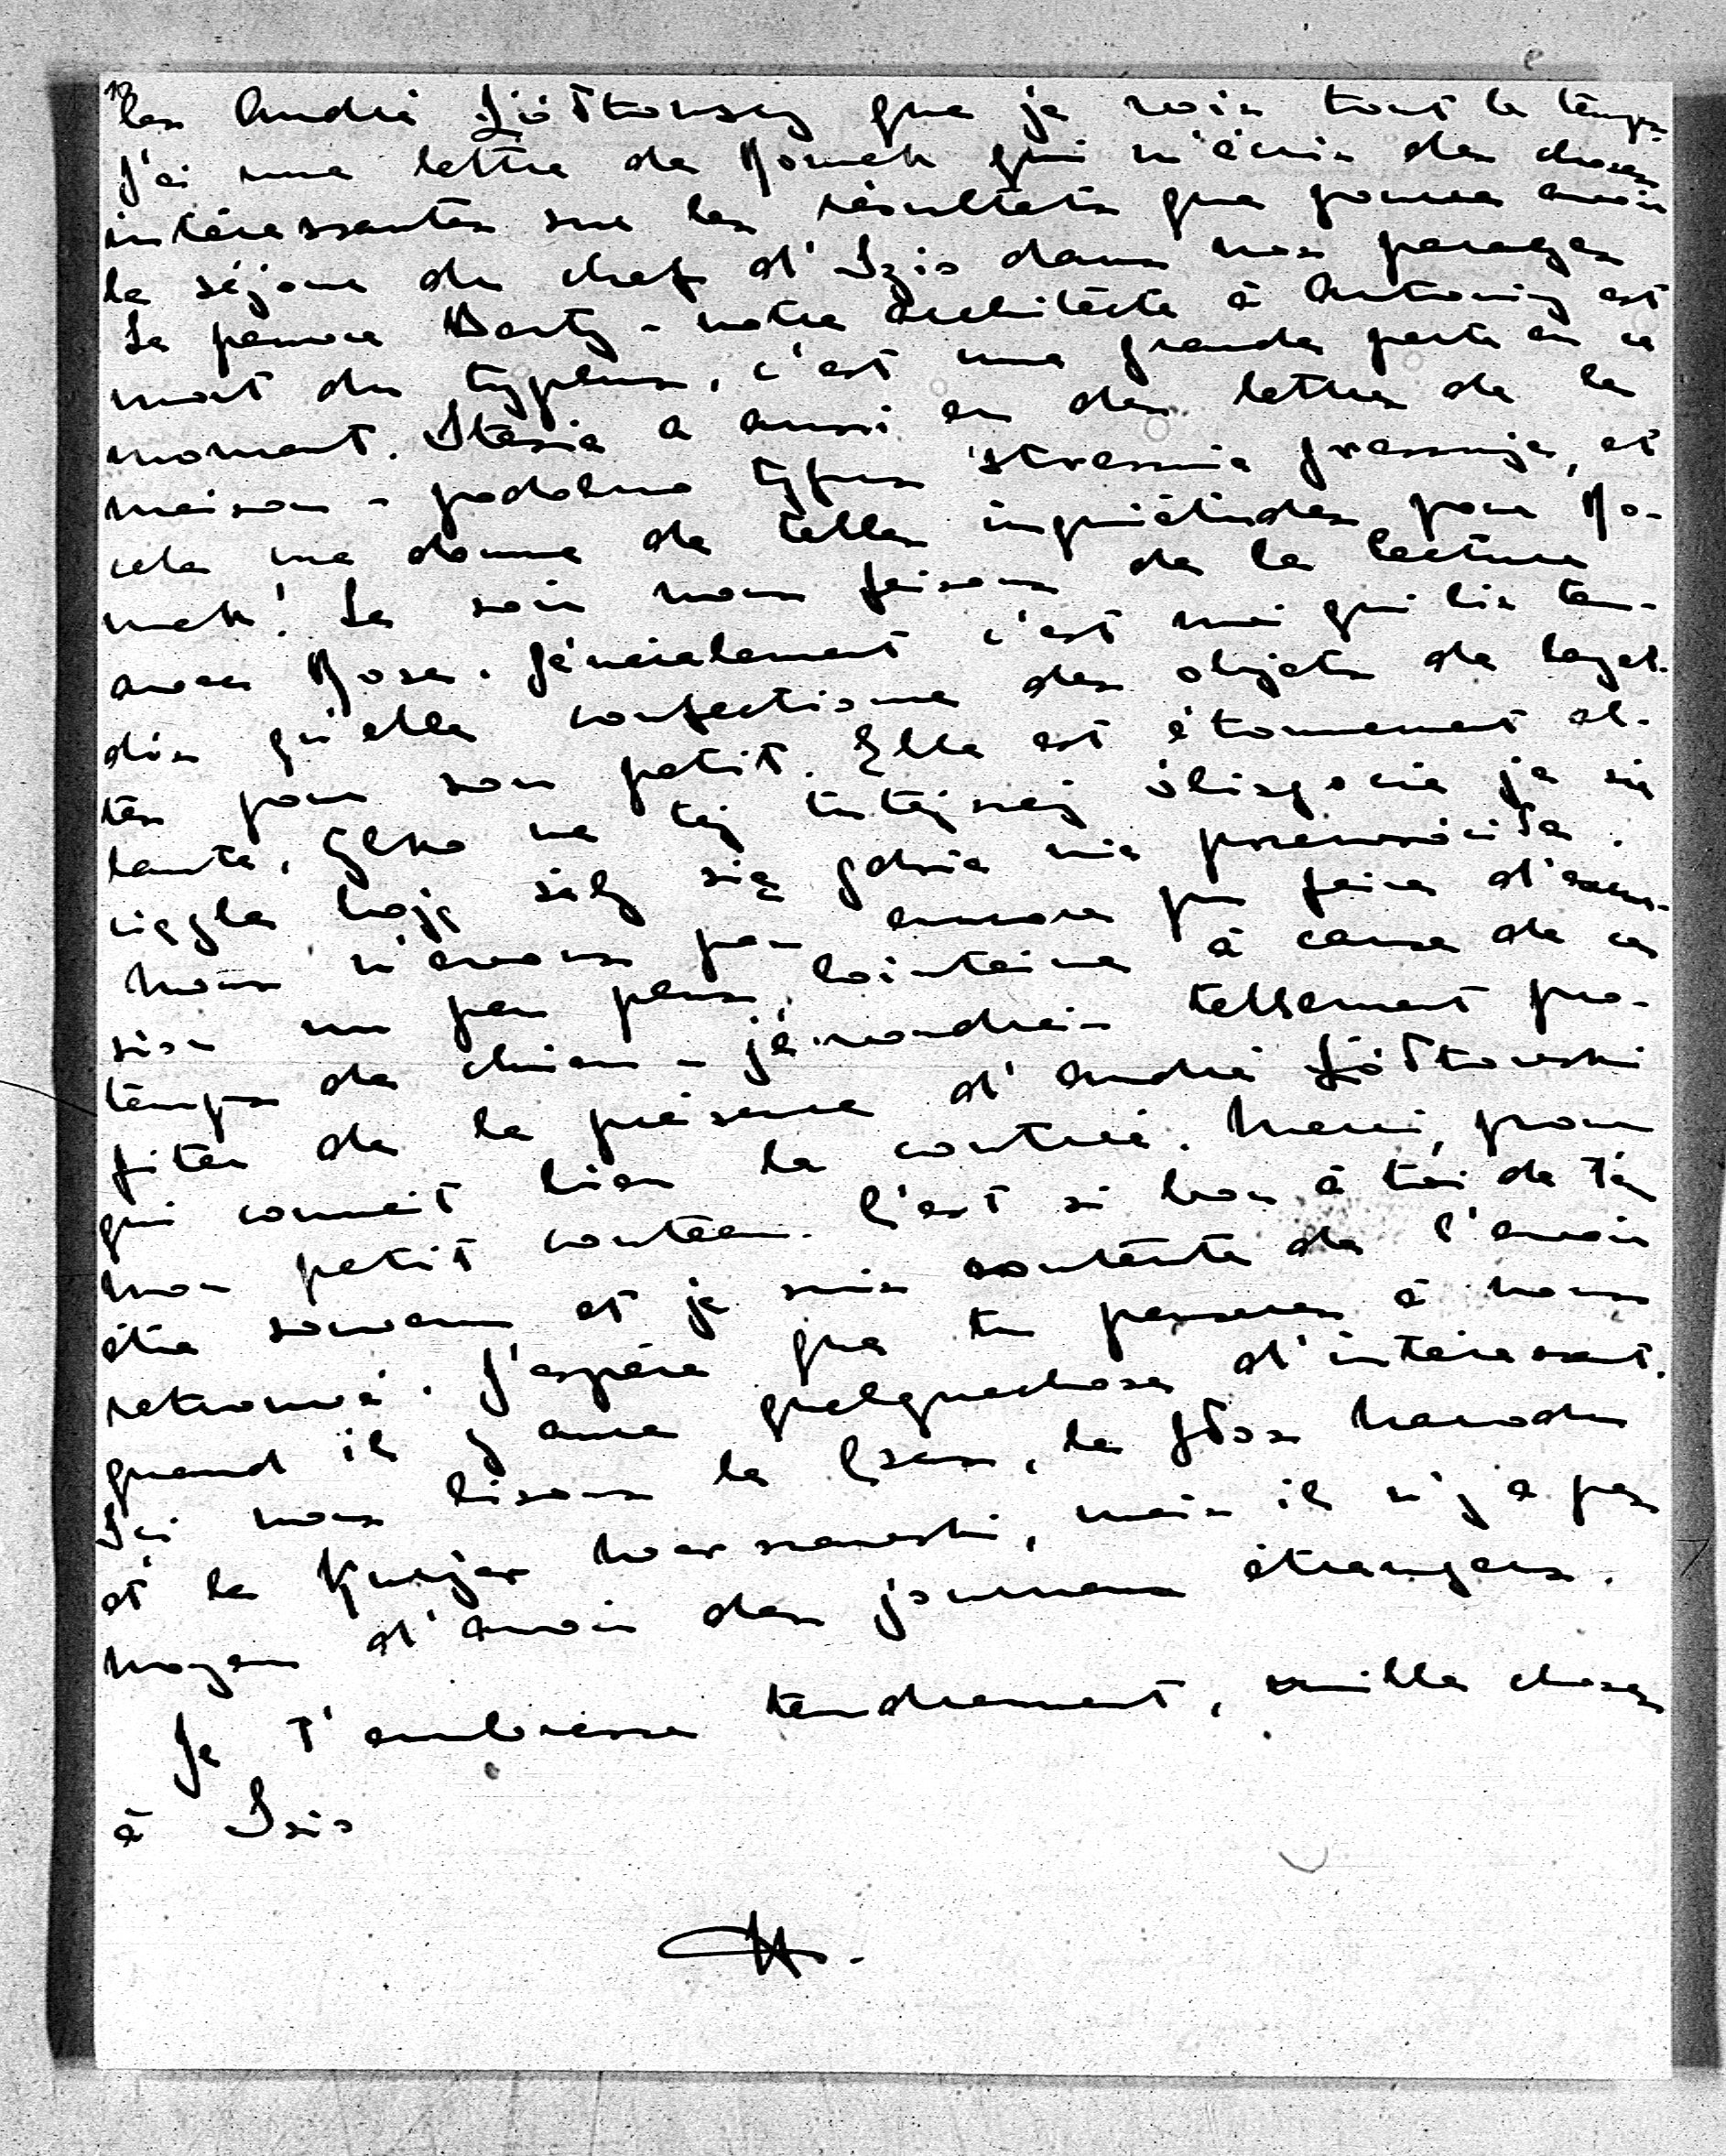 les André Żółtowscy que je vois tout le temps.
J'ai une lettre de Romek qui m'écris des choses
intéressantes sur les résultats que pourra avoir
le séjour du chef d'Izio dans nos parages
Le pauvre Barty - notre architecte à Antoniny est
mort du typhus, c'est une grande perte en ce
moment. Stasia a aussi eu des lettres de la
maison - podobno typus strasznie grassuje, et
cela me donne de telles inquiétudes pour Ro-
mek! Le soir nous faisons de la lecture
avec Rose. Généralement c'est moi qui lis tan-
dis qu'elle confectionne des objets de layet-
tes pour son petit. Elle est étonnement al-
lante, tylko na tej tutejszej ślizgocie ja się
ciągle boję żeby się gdzie nie przewróciła.
Nous n'avons pas encore pu faire d'excur-
sion un peu plus lointaine à cause de ce
temps de chien - je voudrais tellement pro-
fiter de la présence d'André Żółtowski
qui connait bien la contrée. Merci, pour
mon petit couteau. C'est si bon à toi de t'en
être souvenu et je suis contente de l'avoir
retrouvé. J'espère que tu penseras à nous
quand il y aura quelquechose d'intéressant.
Ici nous lisons le Czas, le Głos Narodu
et le Kurjer Warszawski, mais il n'y a pas
moyen d'avoir des journaux étrangers.
Je t'embrasse tendrement, mille choses
à Izio